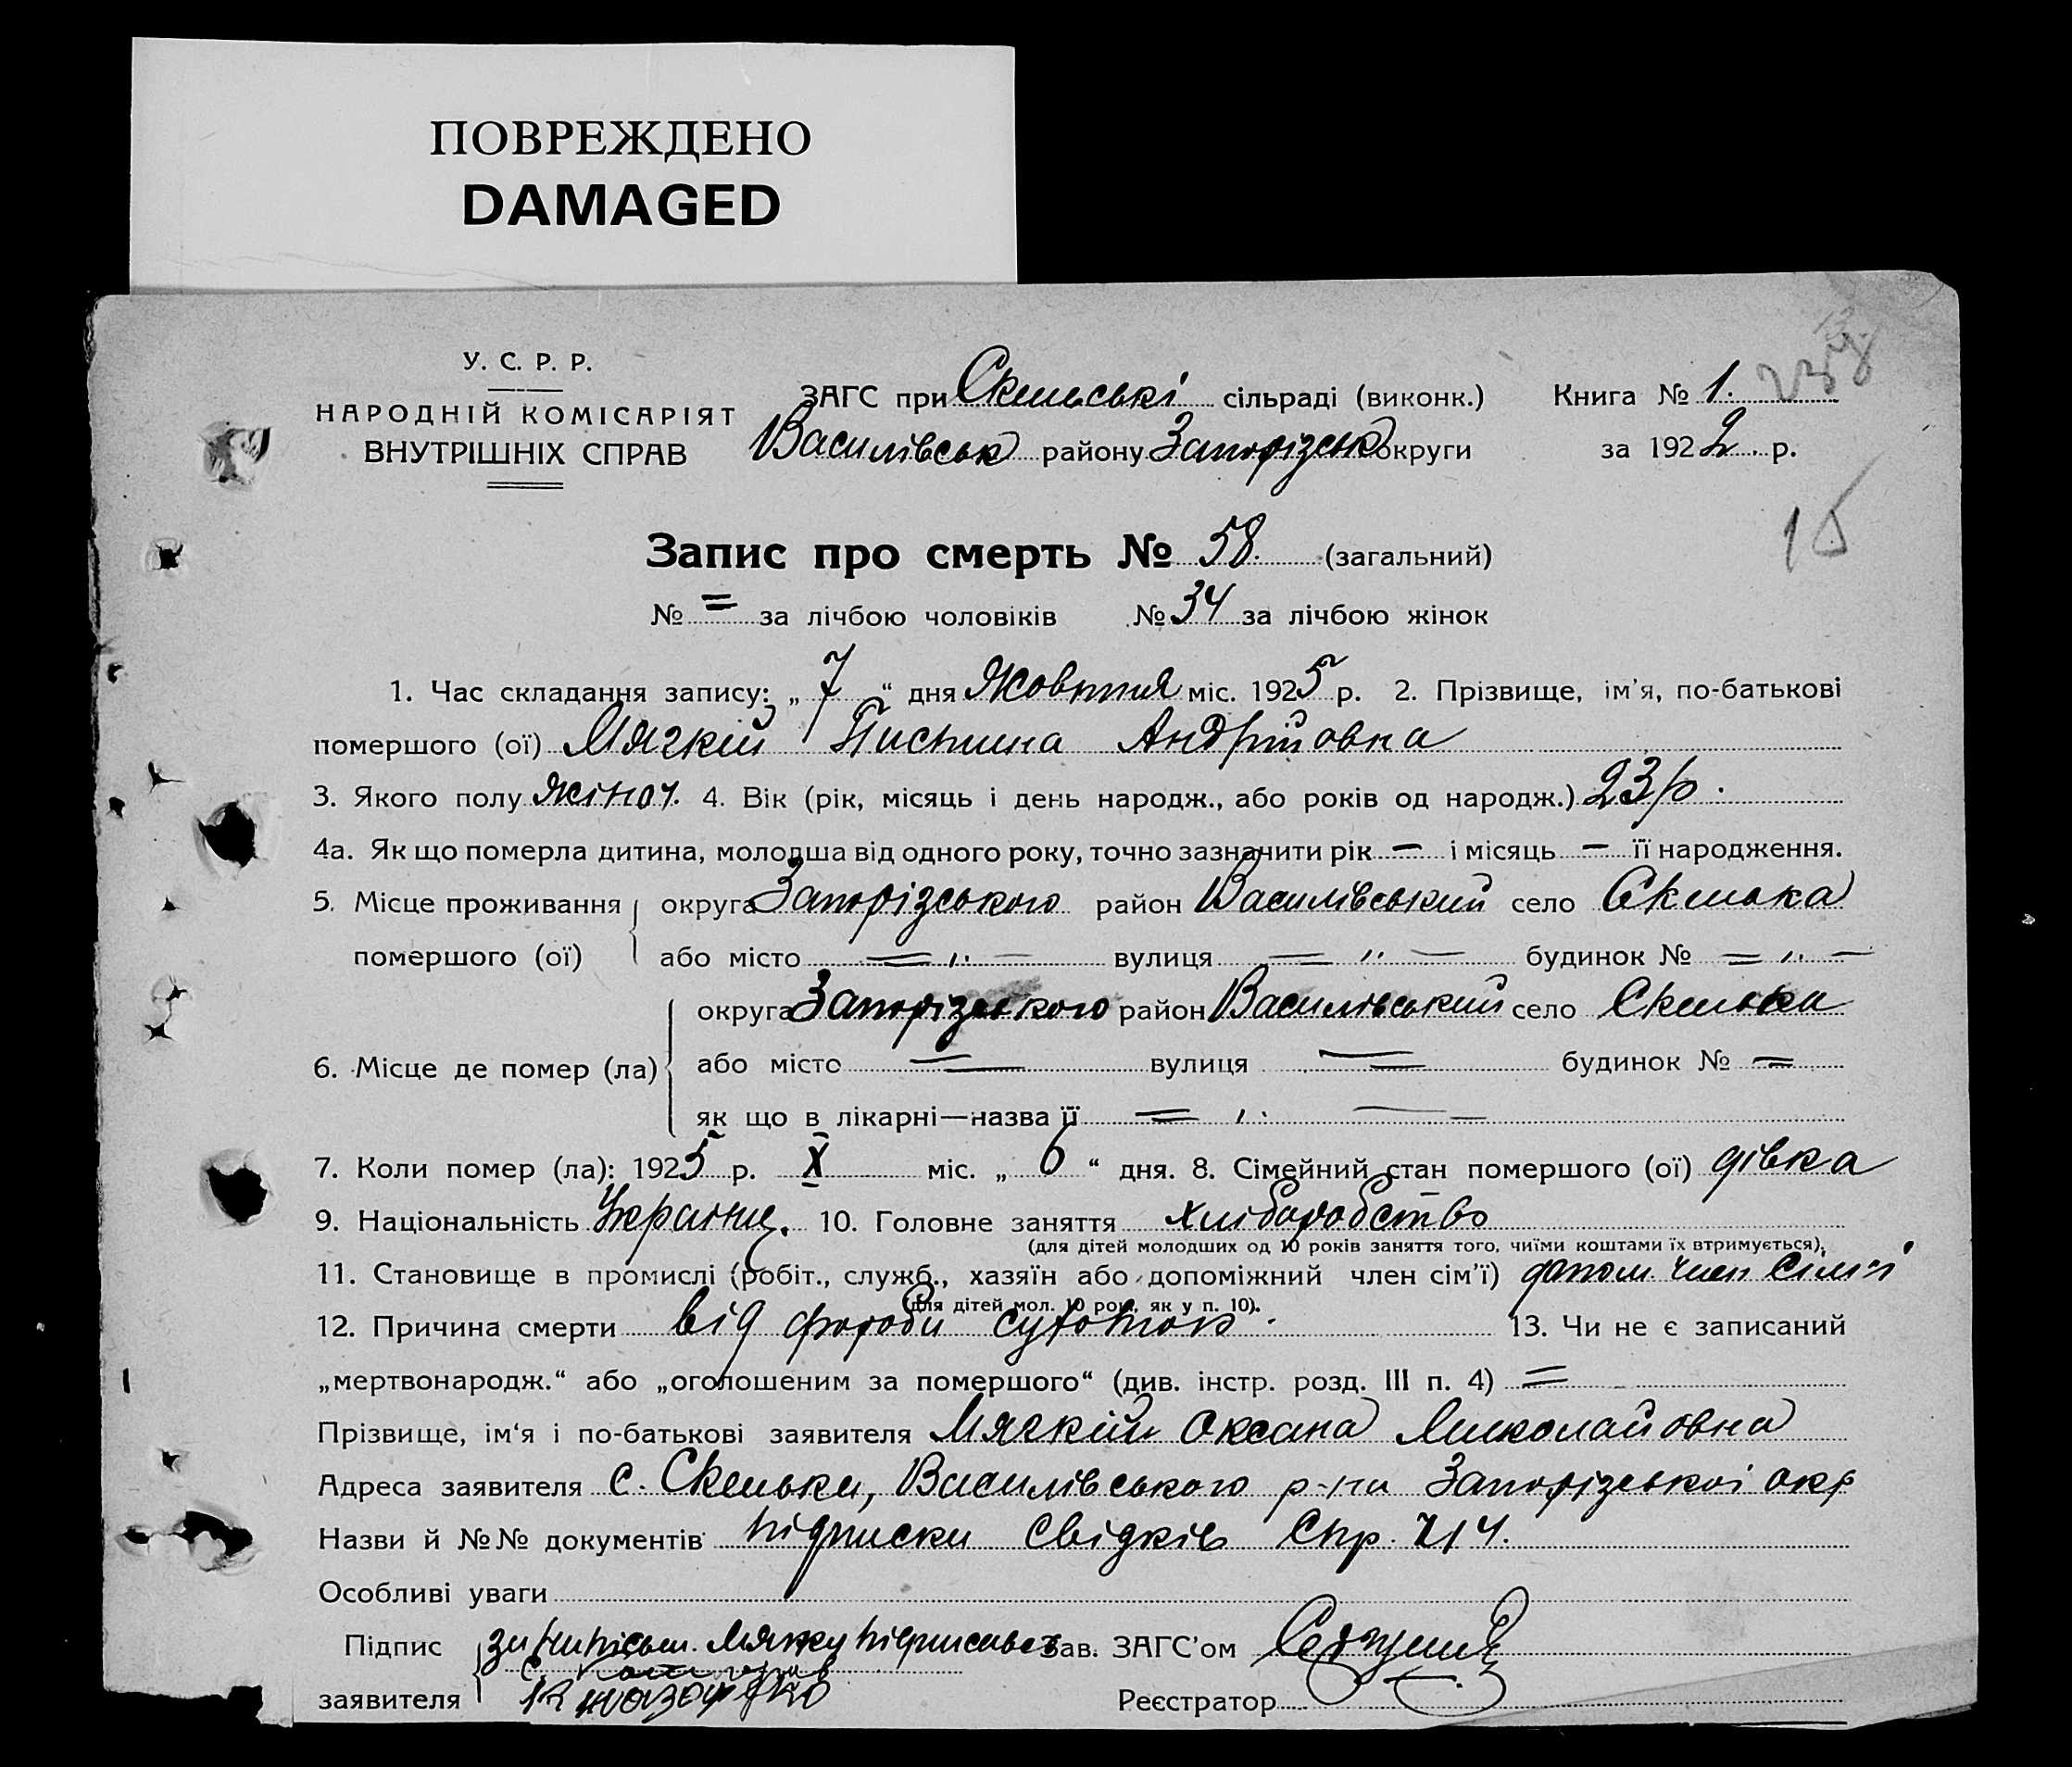 ПОВРЕЖДЕНО
DAMAGED
У. С. Р. Р.
НАРОДНІЙ КОМІСАРІЯТ
ВНУТРІШНІХ СПРАВ
ЗАГС при Скельські сільраді (виконк.) Книга № 1.
Василівськ району Запорізськ округи за 1922 р.
15
Запис про смерть № 58. (загальний)
№ = за лічбою чоловіків № 34 за лічбою жінок
1. Час складання запису: „ 7 “ дня Жовтня міс. 1925 р. 2. Прізвище, ім’я, по-батькові
помершого (ої) Мягкій Тистина Андрійовна
3. Якого полу жіноч. 4. Вік (рік, місяць і день народж., або років од народж.) 23 р.
4а. Як що померла дитина, молодша від одного року, точно зазначити рік — і місяць — її народження.
5. Місце проживання округа Запорізського район Василівський село Скелька
помершого (ої) або місто = „ — вулиця = „ — будинок № = „ —
округа Запорізського район Василівський село Скельки
6. Місце де помер (ла) або місто = вулиця = будинок № =
як що в лікарні—назва її = „ —
7. Коли помер (ла): 1925 р. X міс. „ 6 “ дня. 8. Сімейний стан помершого (ої) дівка
9. Національність Українц. 10. Головне заняття хліборобство
(для дітей молодших од 10 років заняття того, чиїми коштами їх втримується).
11. Становище в промислі (робіт., служб., хазяїн або допоміжний член сім’ї) допом. член сімї
(для дітей мол. 10 рок, як у п. 10).
12. Причина смерти від хороби сухоток. 13. Чи не є записаний
„мертвонародж.“ або „оголошеним за помершого“ (див. інстр. розд. III п. 4) =
Прізвище, ім‘я і по-батькові заявителя Мягкій Оксана Миколайовна
Адреса заявителя с. Скельки, Василівського р-на Запорізської окр
Назви й №№ документів підписки свідків Спр. 214.
Особливі уваги
Підпис за підписався Зав. ЗАГС’ом
заявителя Реєстратор